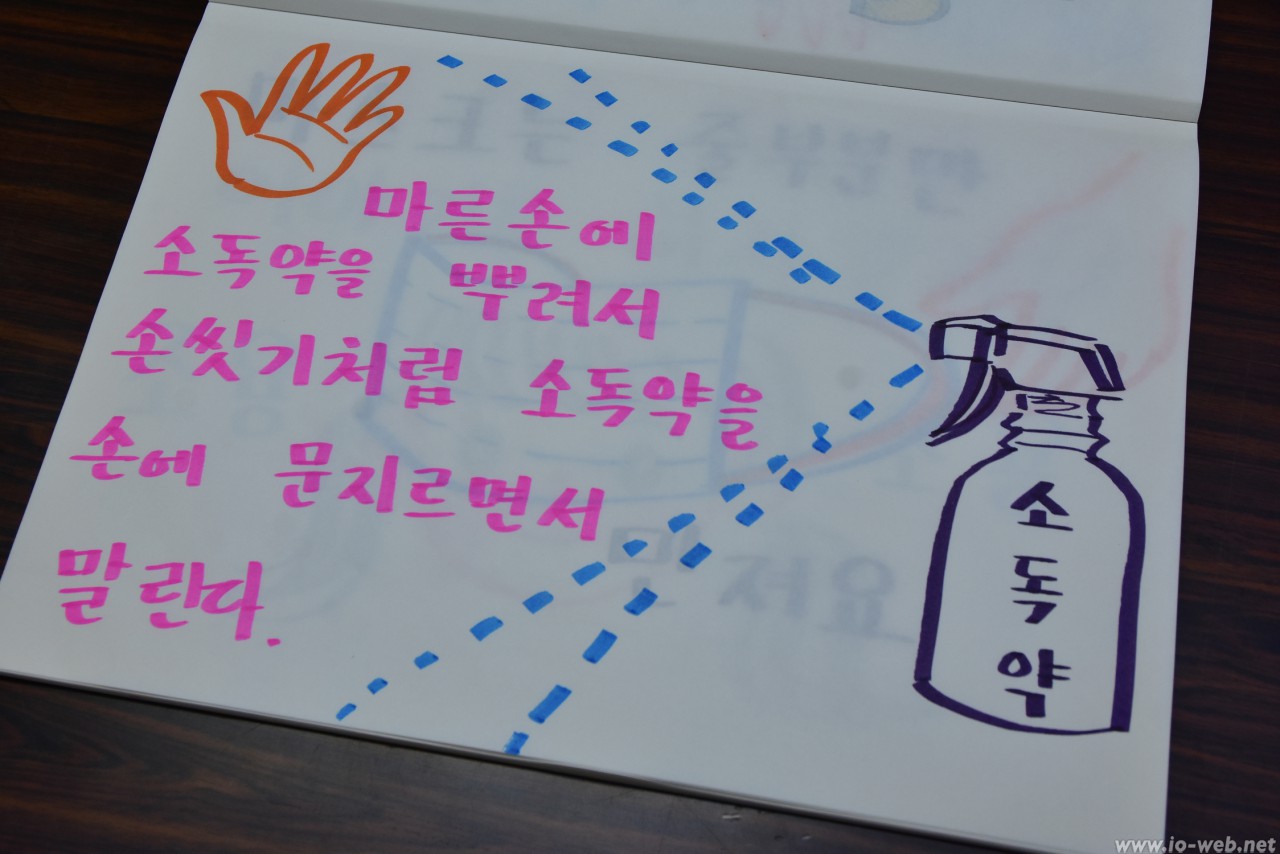 마른손에
소독약을 뿌려서
손씻기처럼 소독약을
손에 문지르면서
말린다.
소
독
약
www.io-web.net